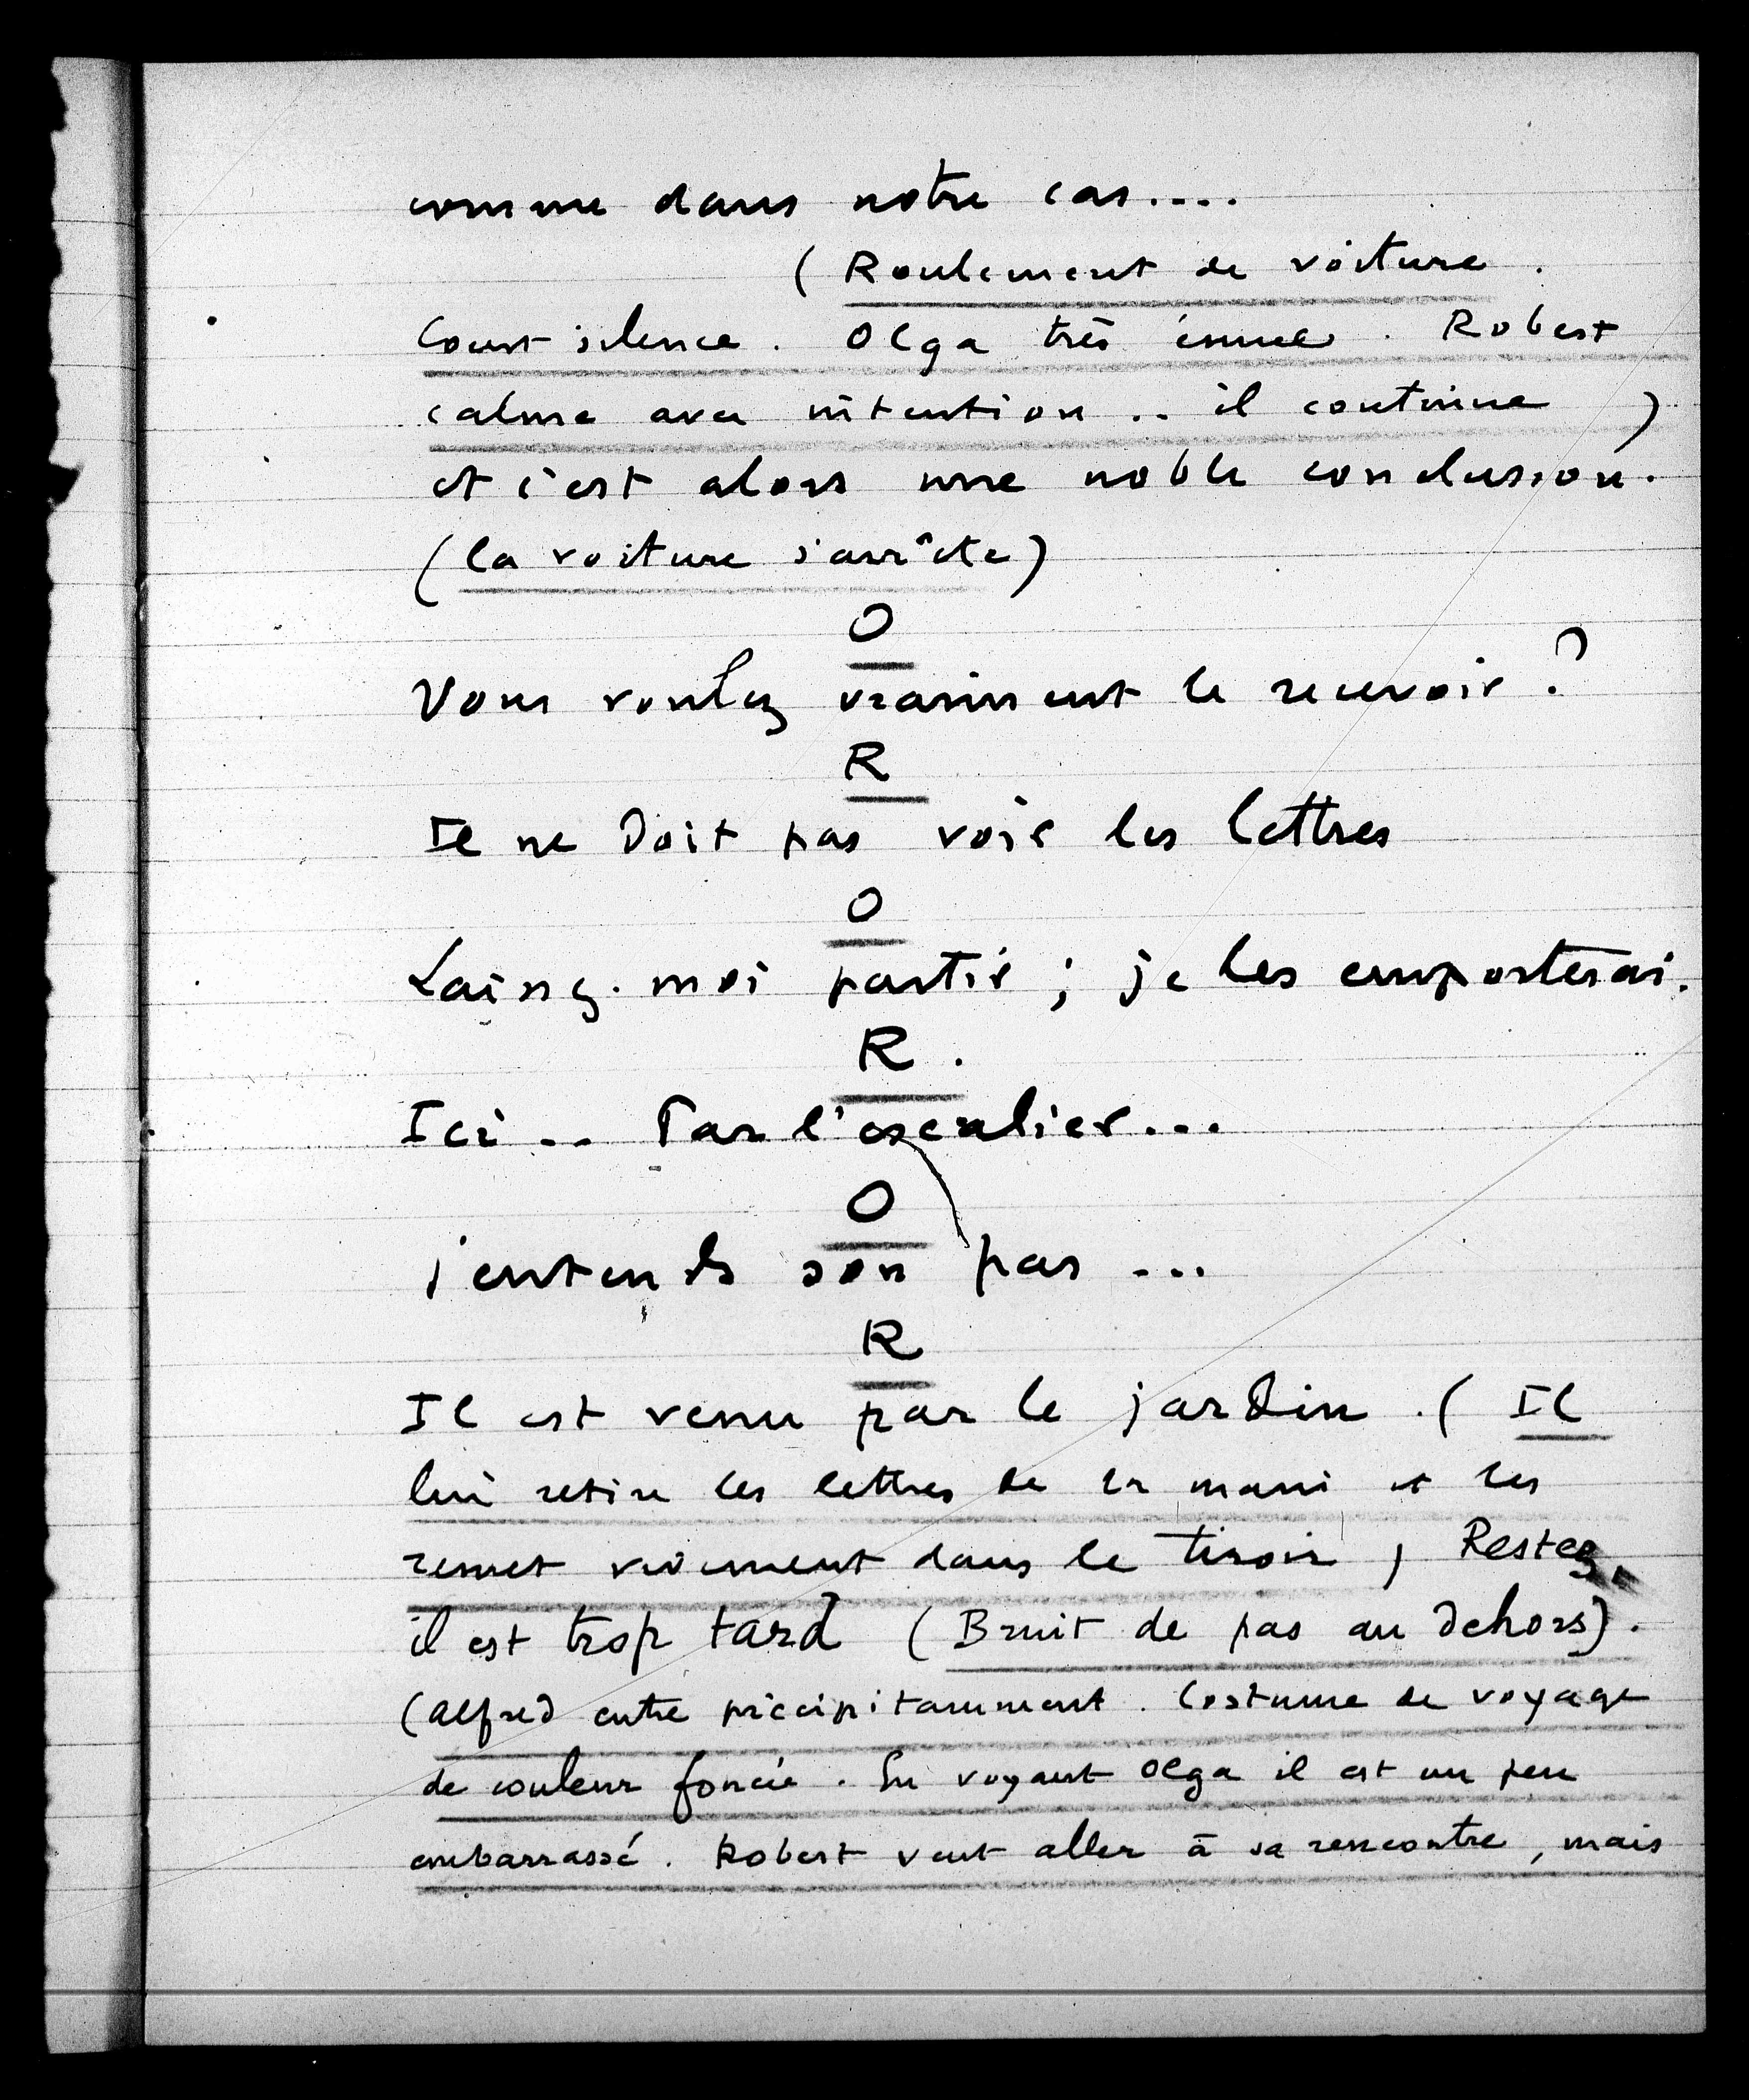 comme dans notre cas....
(Roulement de voiture.
Court silence. Olga très émue. Robert
calme avec intention .. il continue)
et c'est alors une noble conclusion.
(la voiture s'arrête)
O
Vous voulez vraiment le recevoir ?
R
Il ne doit pas voir les lettres
O
Laissez-moi partir ; je les emporterai.
R.
Ici .. Par l'escalier...
O
j'entends son pas ...
R
Il est venu par le jardin. (Il
lui retire les lettres de la main et les
remet vivement dans le tiroir) Restez,
il est trop tard (Bruit de pas au dehors).
(Alfred entre précipitamment. Costume de voyage
de couleur foncée. En voyant Olga il est un peu
embarrassé. Robert veut aller à sa rencontre, mais